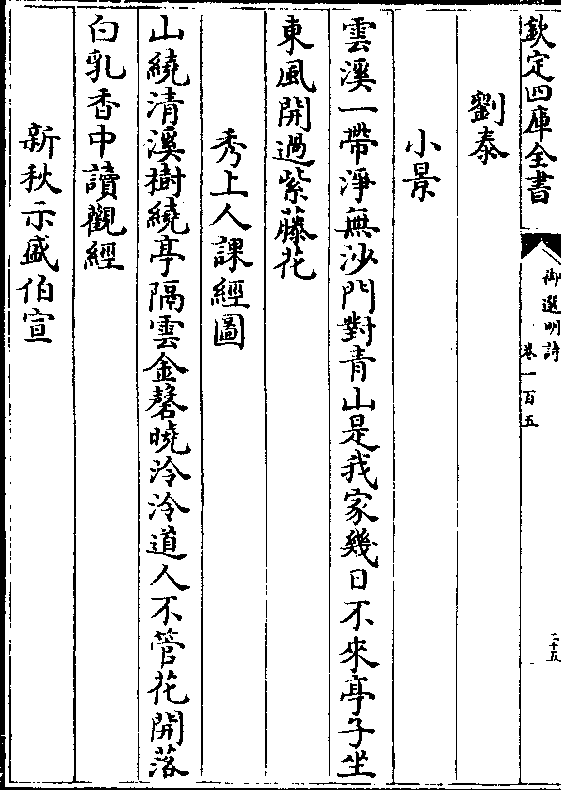 欽定四庫全書
御選明詩
卷一百五
二十五
劉泰
小景
雲溪一帶淨無沙門對青山是我家幾日不來亭子坐
東風開過紫藤花
秀上人課經圖
山繞清溪樹繞亭隔雲金磬曉泠泠道人不管花開落
白乳香中讀觀經
新秋示盛伯宣